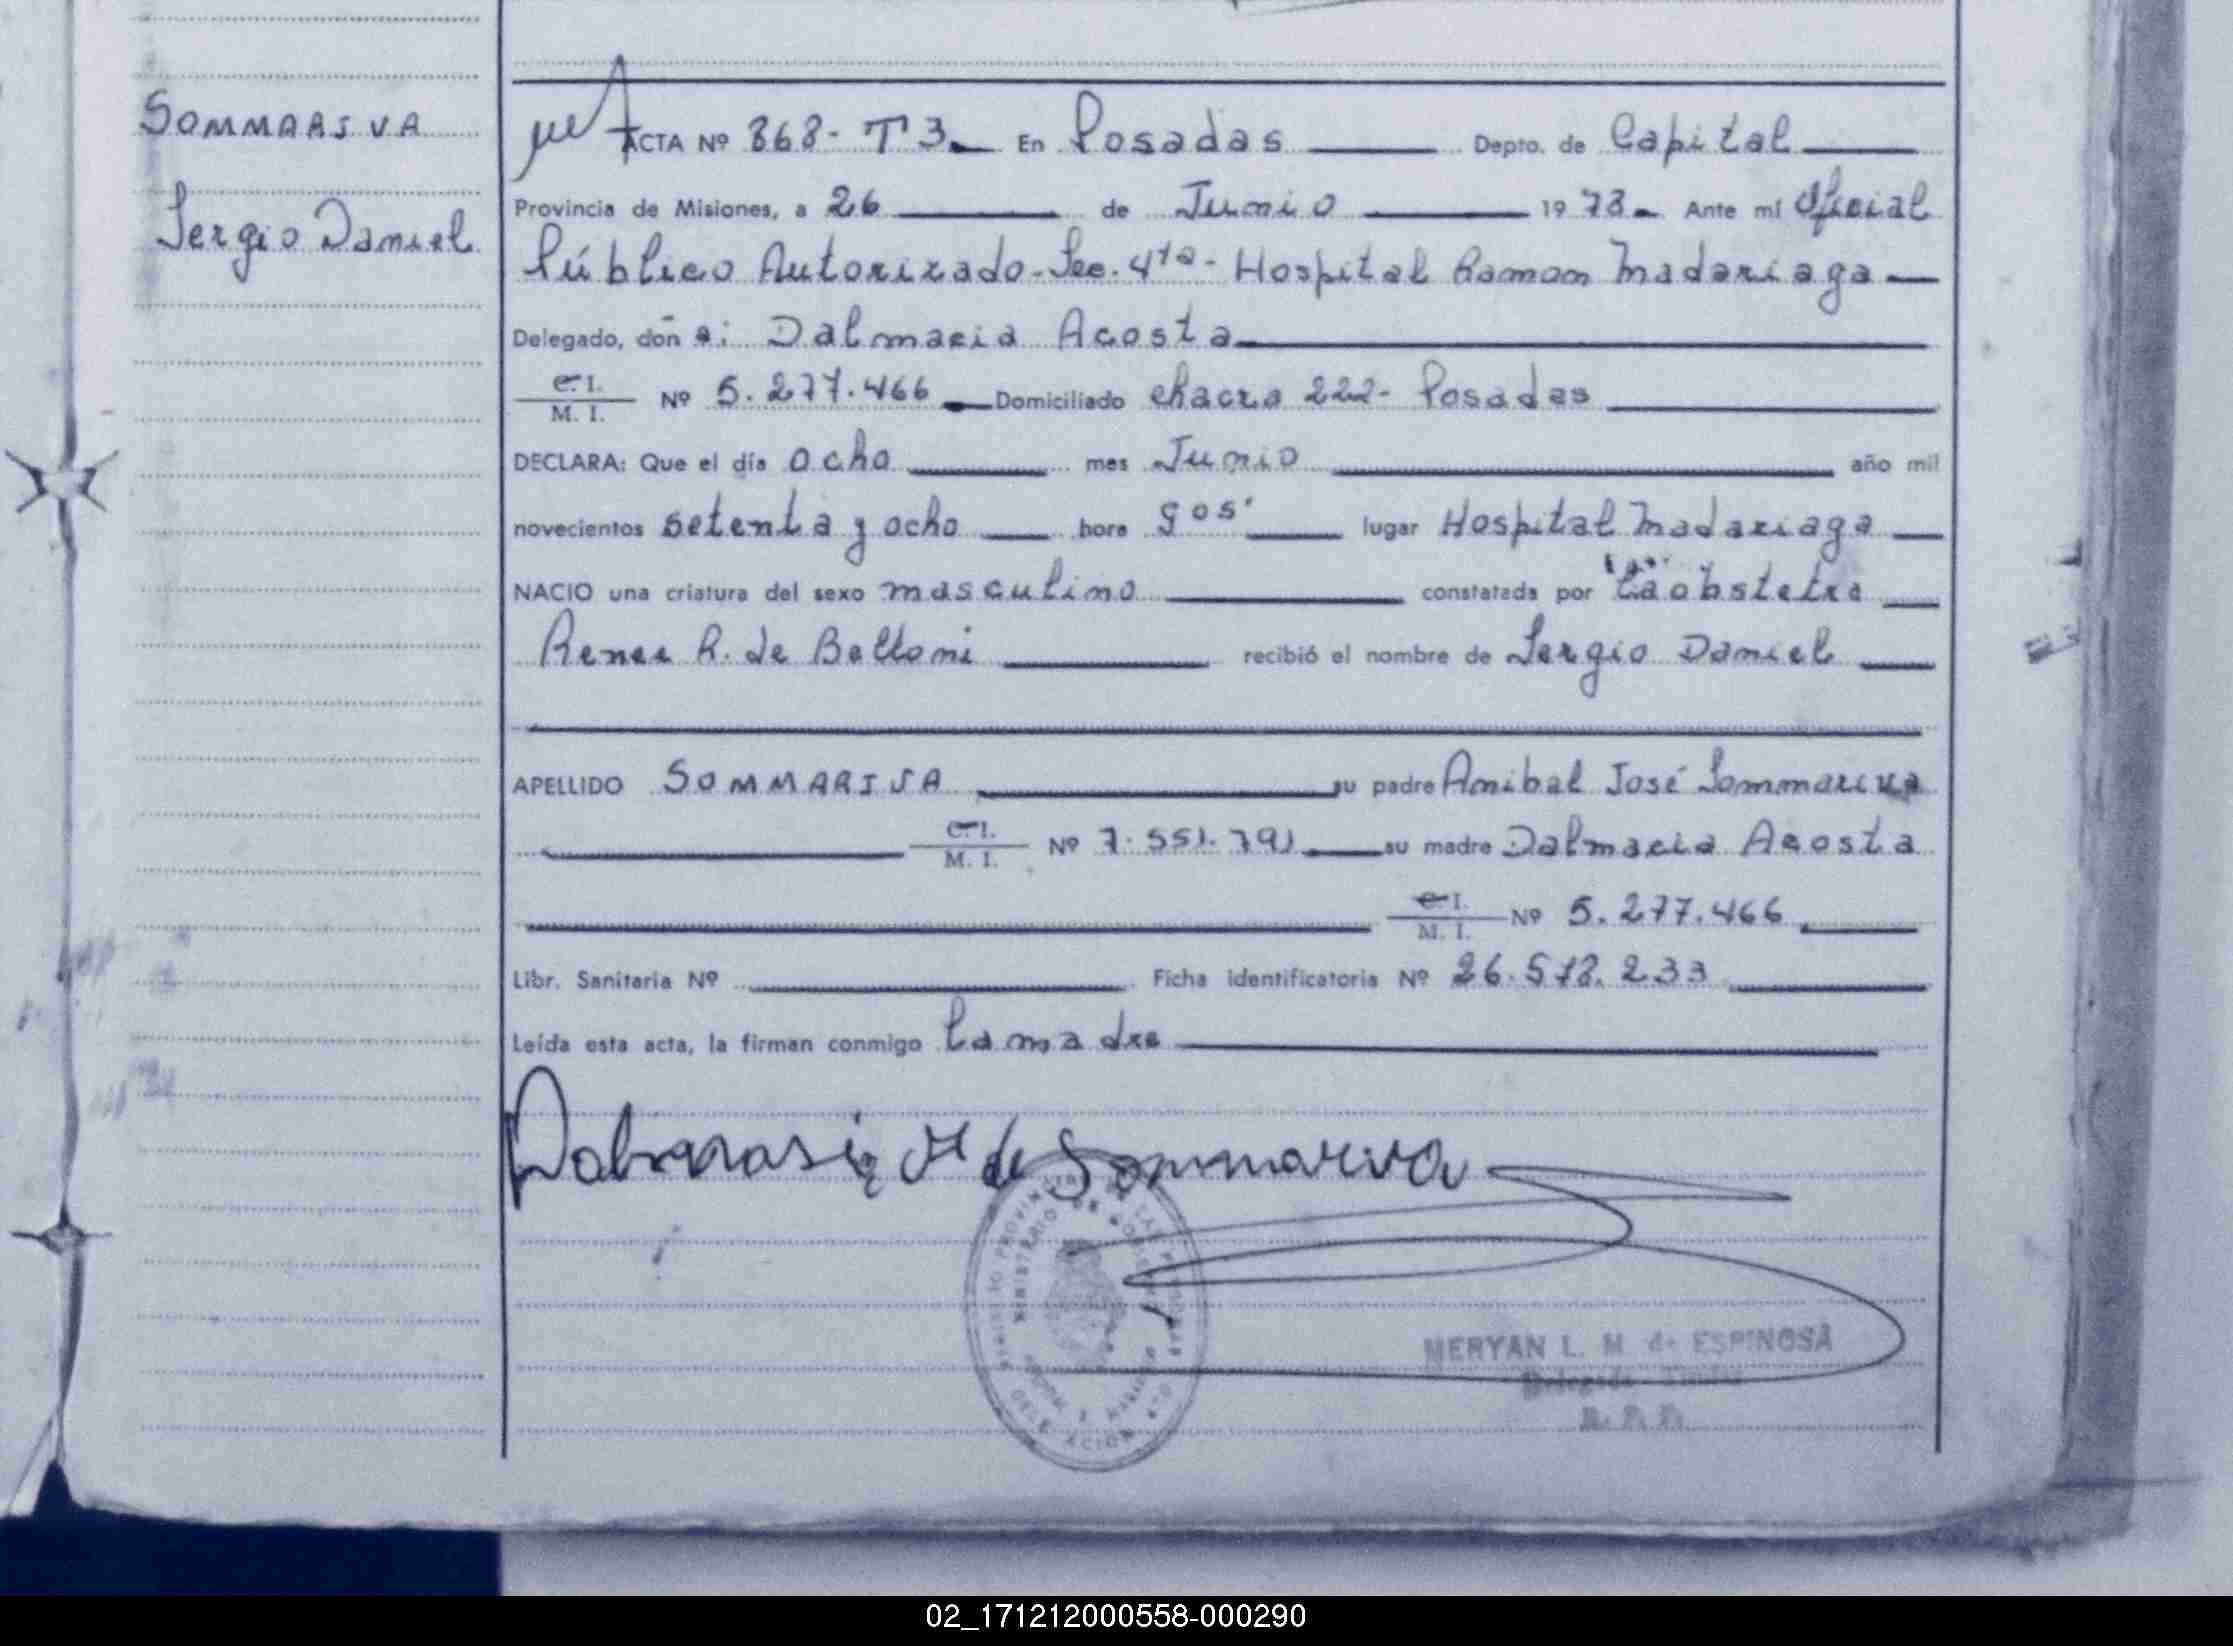 SOMMARIVA
Sergio Daniel
ACTA Nº 868- T 3 En Posadas Depto. de Capital
Provincia de Misiones, a 26 de Junio 1978 Ante mí Oficial
Público Autorizado-Sec. 4ta- Hospital Ramon Madariaga
Delegado, don a: Dalmacia Acosta
C. I.
M. I. Nº 5.277.466 Domiciliado chacra 222- Posadas
DECLARA: Que el día ocho mes Junio año mil
novecientos setenta y ocho hora 9 os. lugar Hospital Madariaga
NACIO una criatura del sexo masculino constatada por la obstetra
Renee R. de Beltoni recibió el nombre de Sergio Daniel
APELLIDO SOMMARIVA su padre Anibal José Sommariva
C. I.
M. I. Nº 7.551.791 su madre Dalmacia Acosta
C. I.
M. I. Nº 5.277.466
Libr. Sanitaria Nº Ficha identificatoria Nº 26.578.233
Leída esta acta, la firman conmigo la madre
de Sommariva
MERYAN L. M. de ESPINOSA
Delegada Titular
02_171212000558-000290